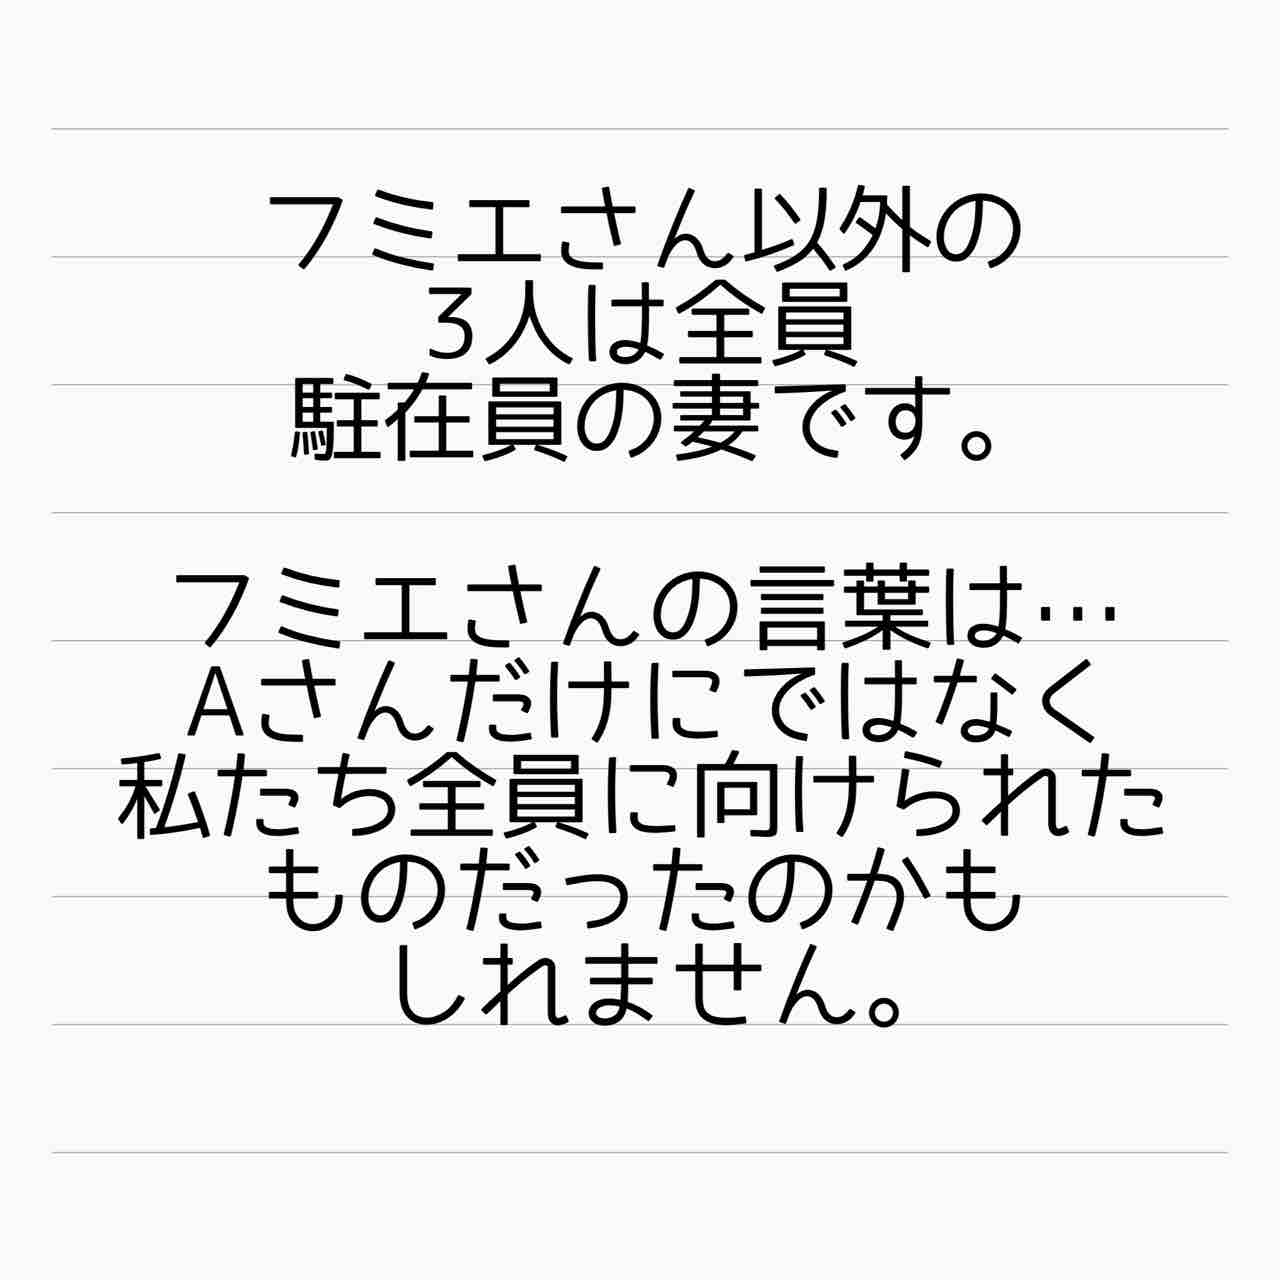 フミエさん以外の
3人は全員
駐在員の妻です。
フミエさんの言葉は…
Aさんだけにではなく
私たち全員に向けられた
ものだったのかも
しれません。